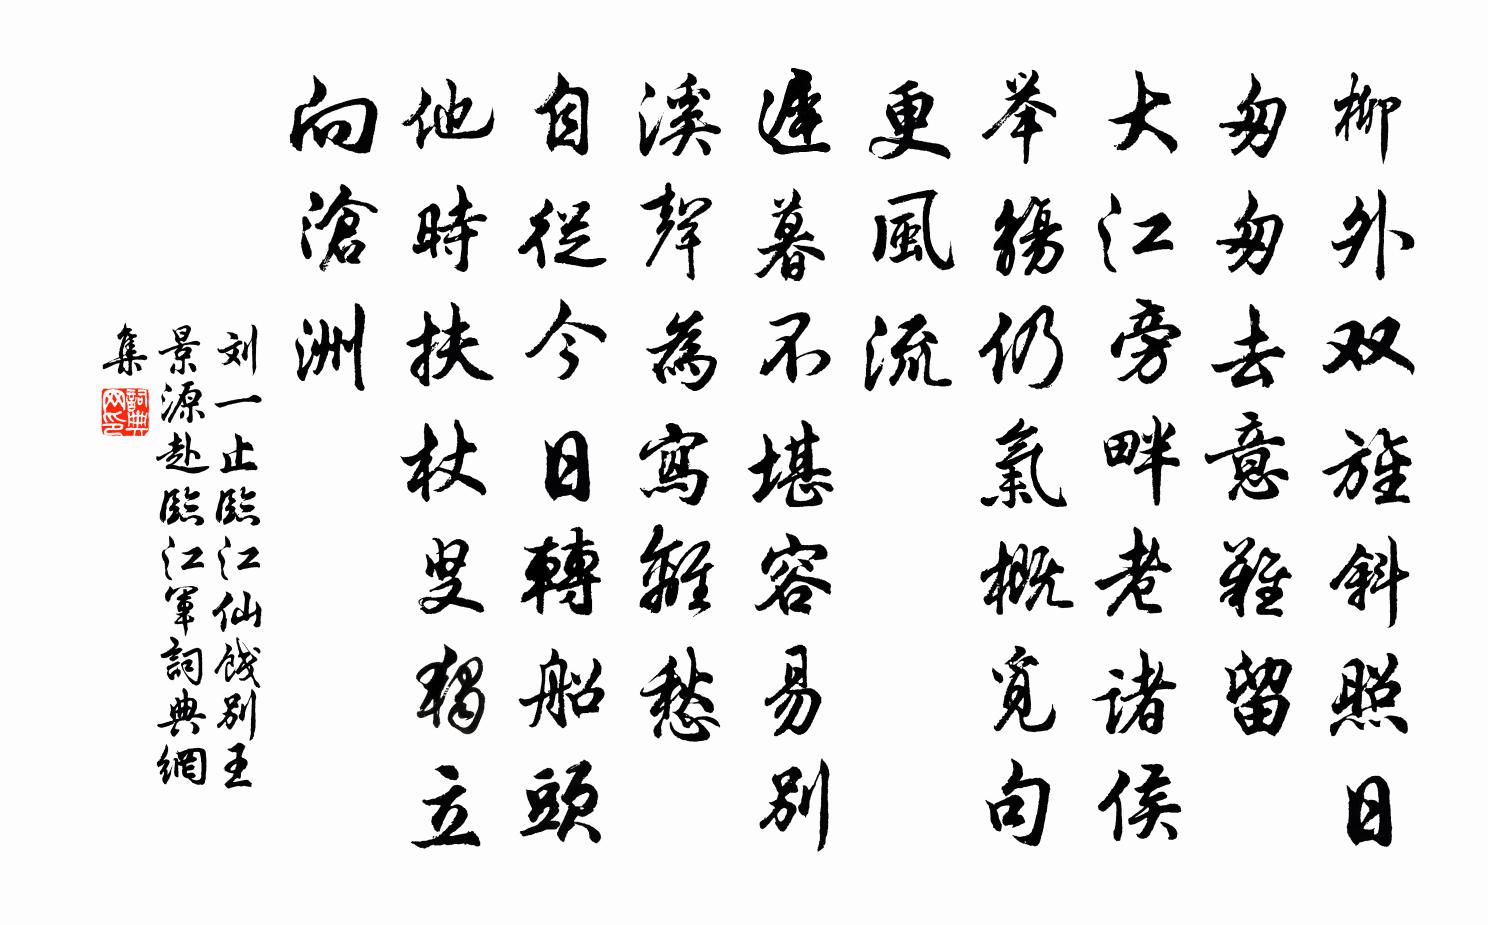 柳外双旌斜照日
匆匆去意難留
大江旁畔老諸侯
举觴仍氣概覓句
更風流
遲暮不堪容易別
溪聲為寫離愁
自從今日轉船頭
他時扶杖叟獨立
向滄洲
刘一止臨江仙餞別王
景源赴臨江軍詞典網
集
詞典
网印